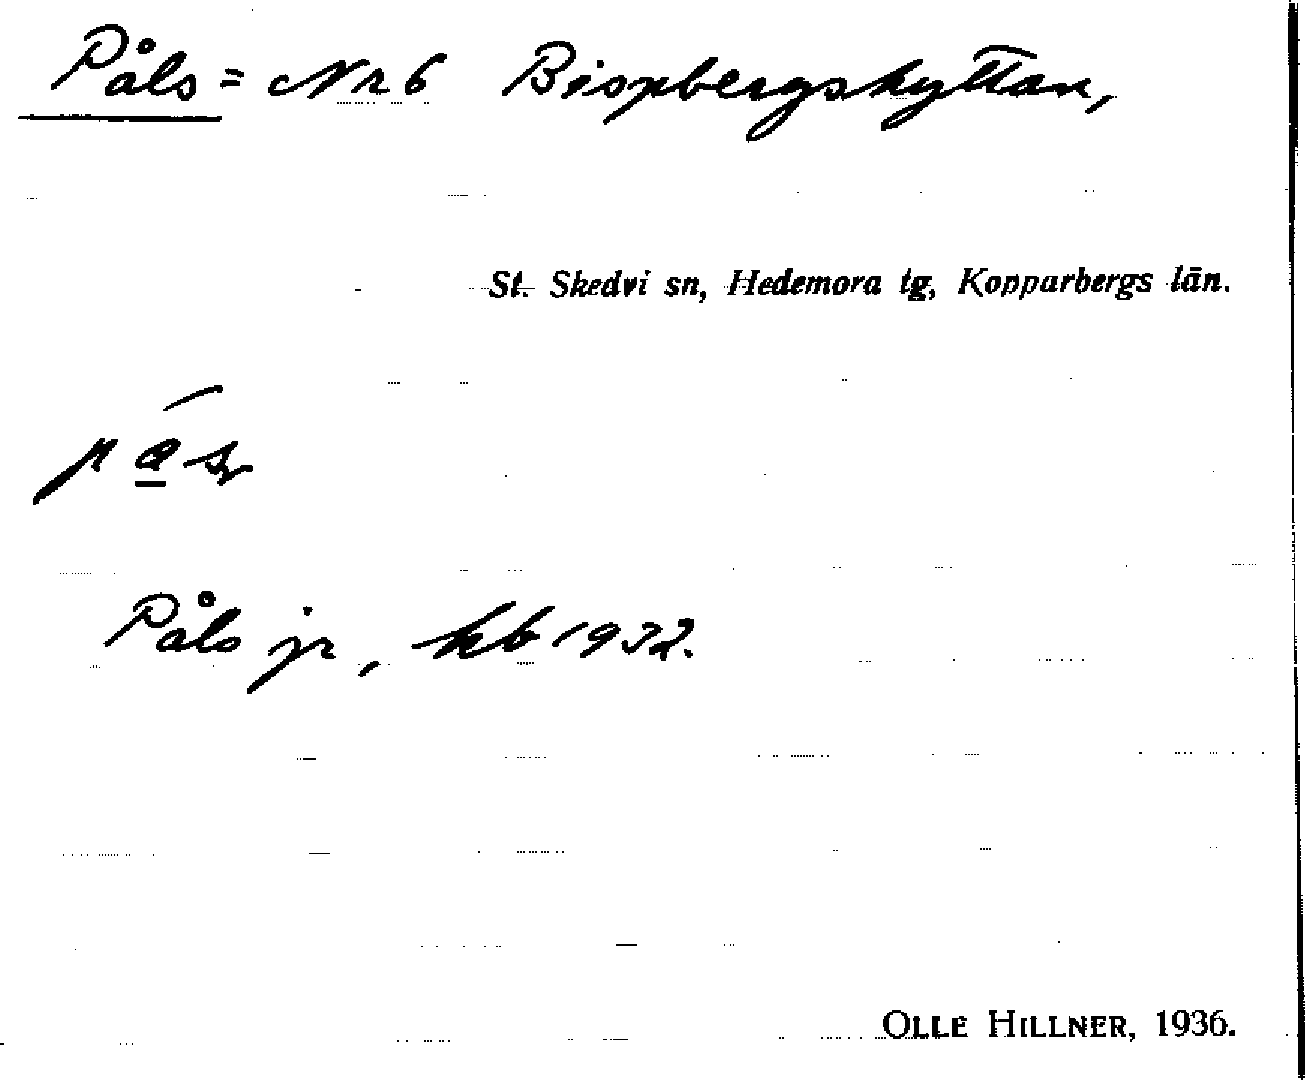 Påls = Nr 6 Bispbergshyttan,
St. Skedvi sn, Hedemora tg, Kopparbergs län.
Påls jr, kb 1932.
OLLE HILLNER, 1936.